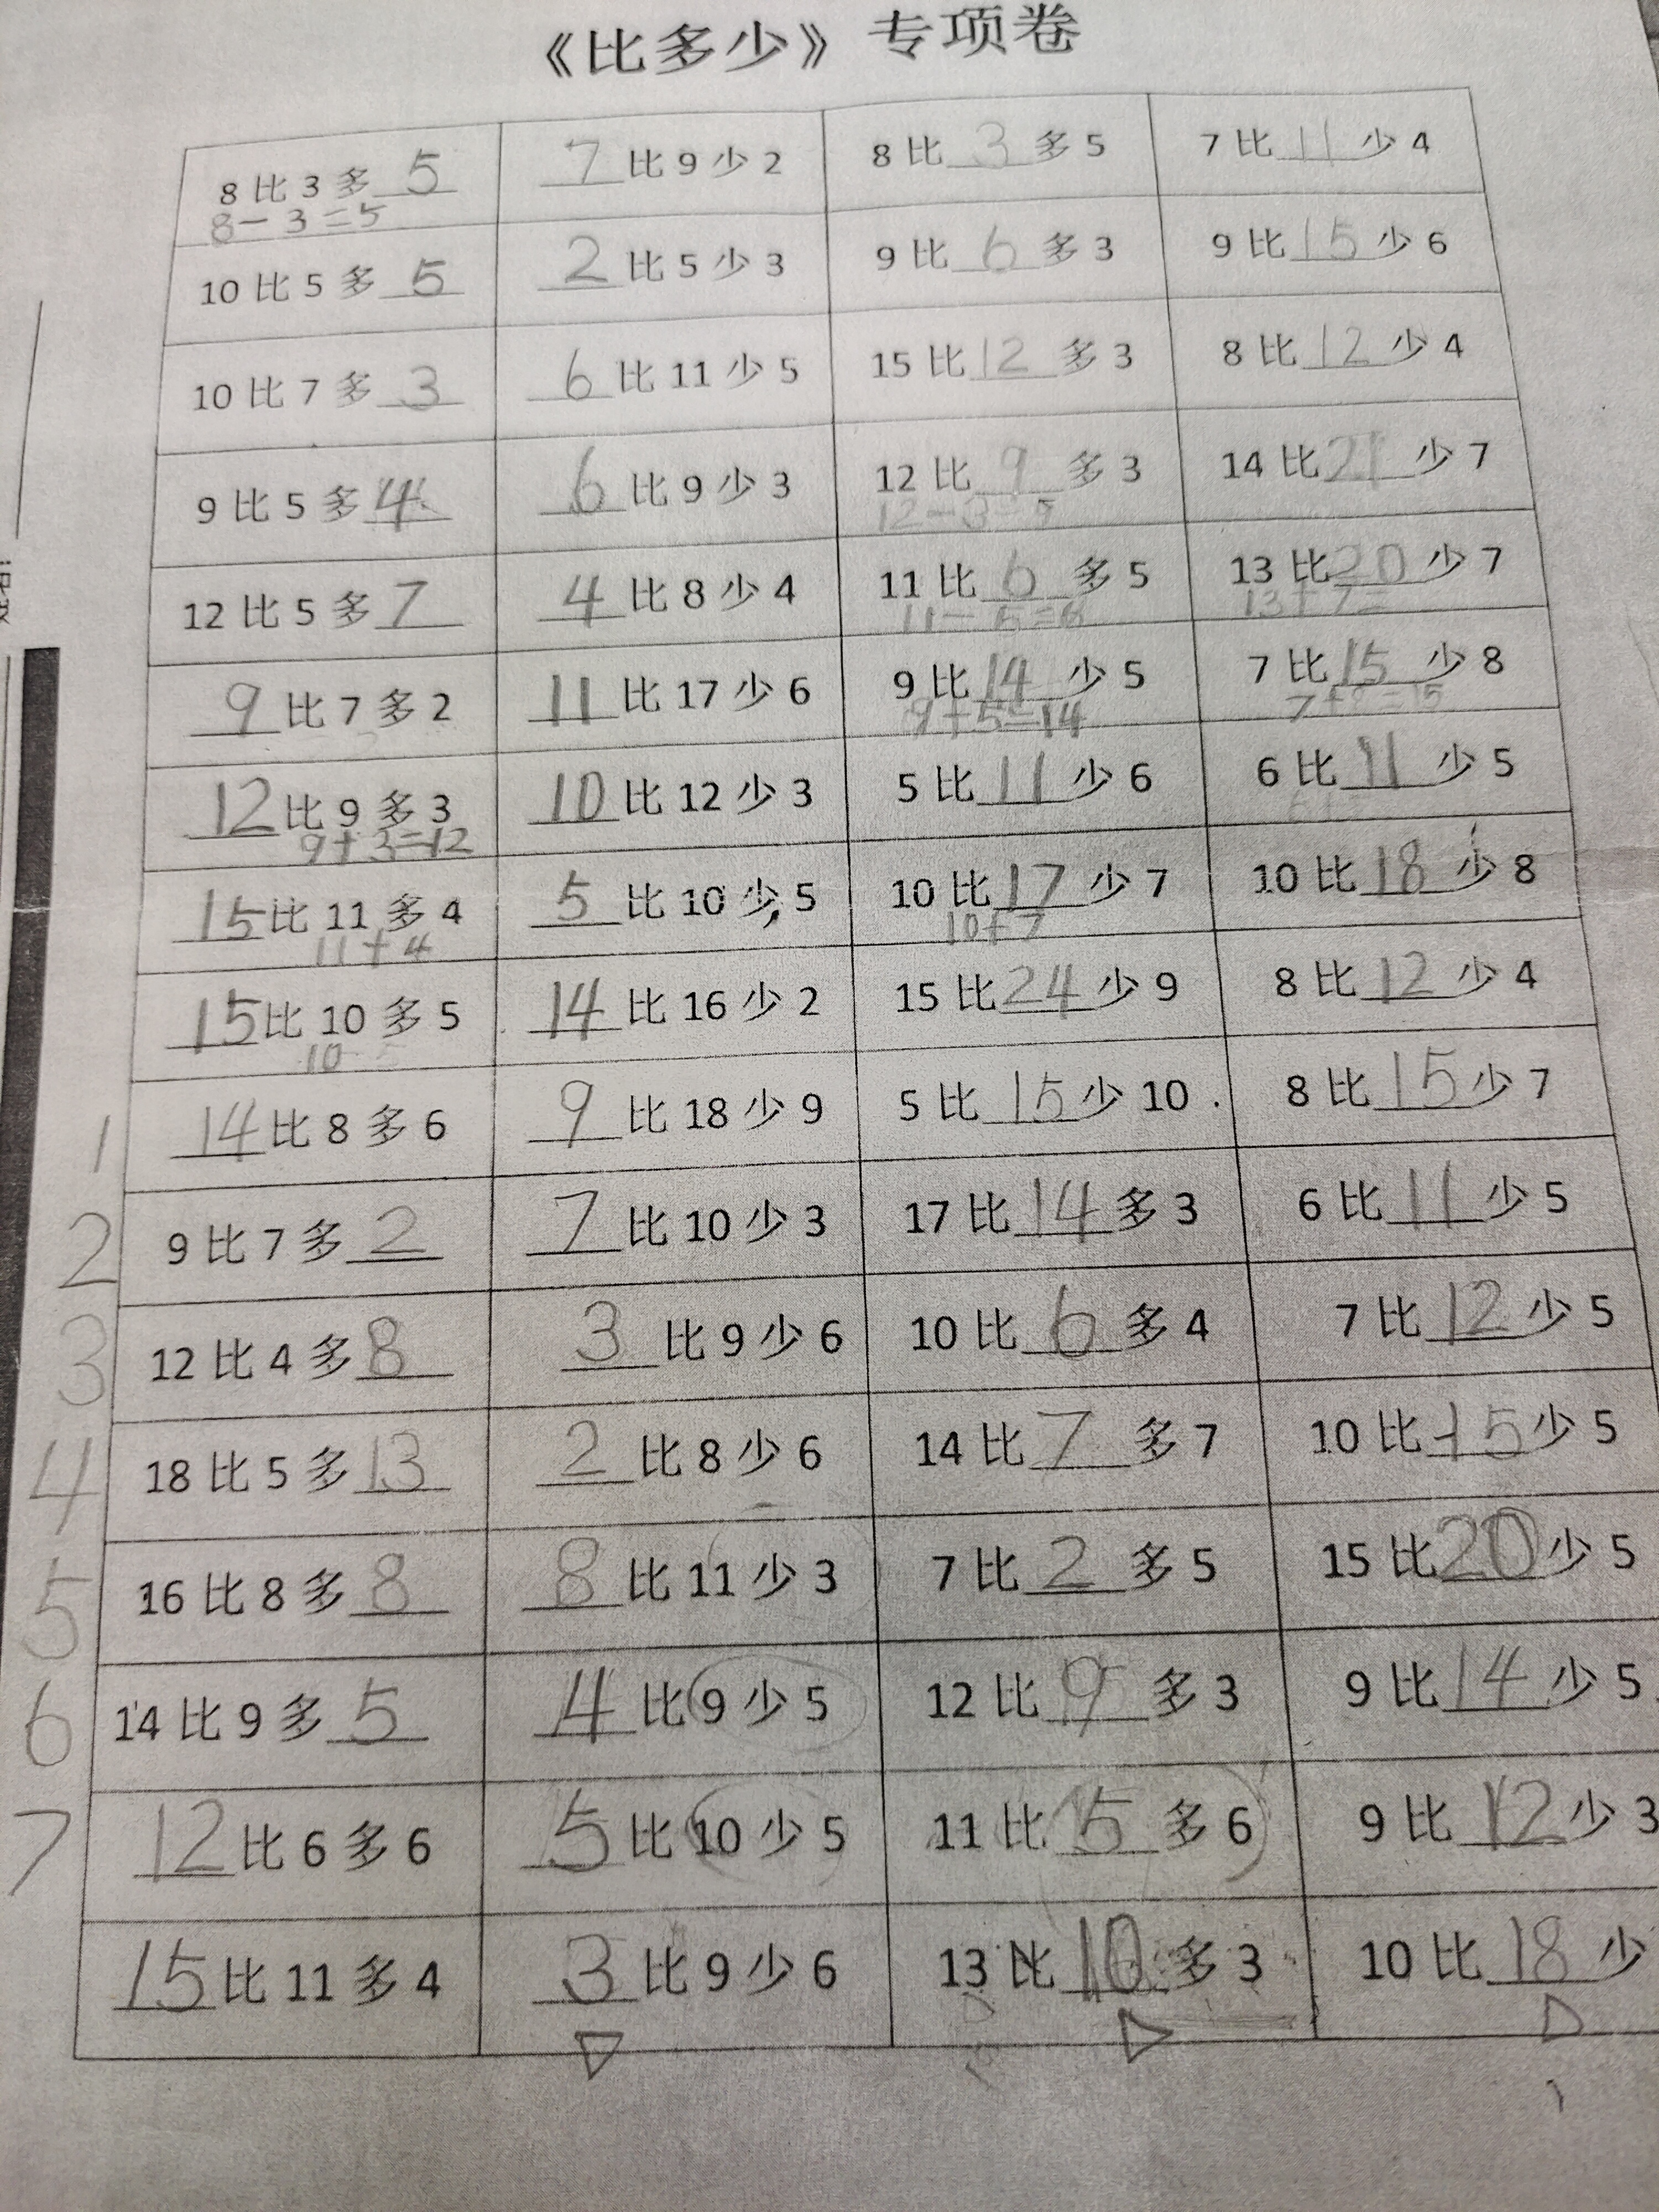 《比多少》专项卷
8比3多5 7比9少2 8比3多5 7比11少4
8-3=5
10比5多5 2比5少3 9比6多3 9比15少6
10比7多3 6比11少5 15比12多3 8比12少4
9比5多4 6比9少3 12比9多3 14比21少7
12比5多7 4比8少4 11比6多5 13比20少7
11-5=6 13+7=
9比7多2 11比17少6 9比14少5 7比15少8
9+5=14 7+8=15
12比9多3 10比12少3 5比11少6 6比11少5
9+3=12
15比11多4 5比10少5 10比17少7 10比18少8
11+4 10+7
15比10多5 14比16少2 15比24少9 8比12少4
10
14比8多6 9比18少9 5比15少10 8比15少7
1
9比7多2 7比10少3 17比14多3 6比11少5
2
12比4多8 3比9少6 10比6多4 7比12少5
3
18比5多13 2比8少6 14比7多7 10比15少5
4
16比8多8 8比11少3 7比2多5 15比20少5
5
14比9多5 4比9少5 12比9多3 9比14少5
6
12比6多6 5比10少5 11比5多6 9比12少3
7
15比11多4 3比9少6 13比10多3 10比18少